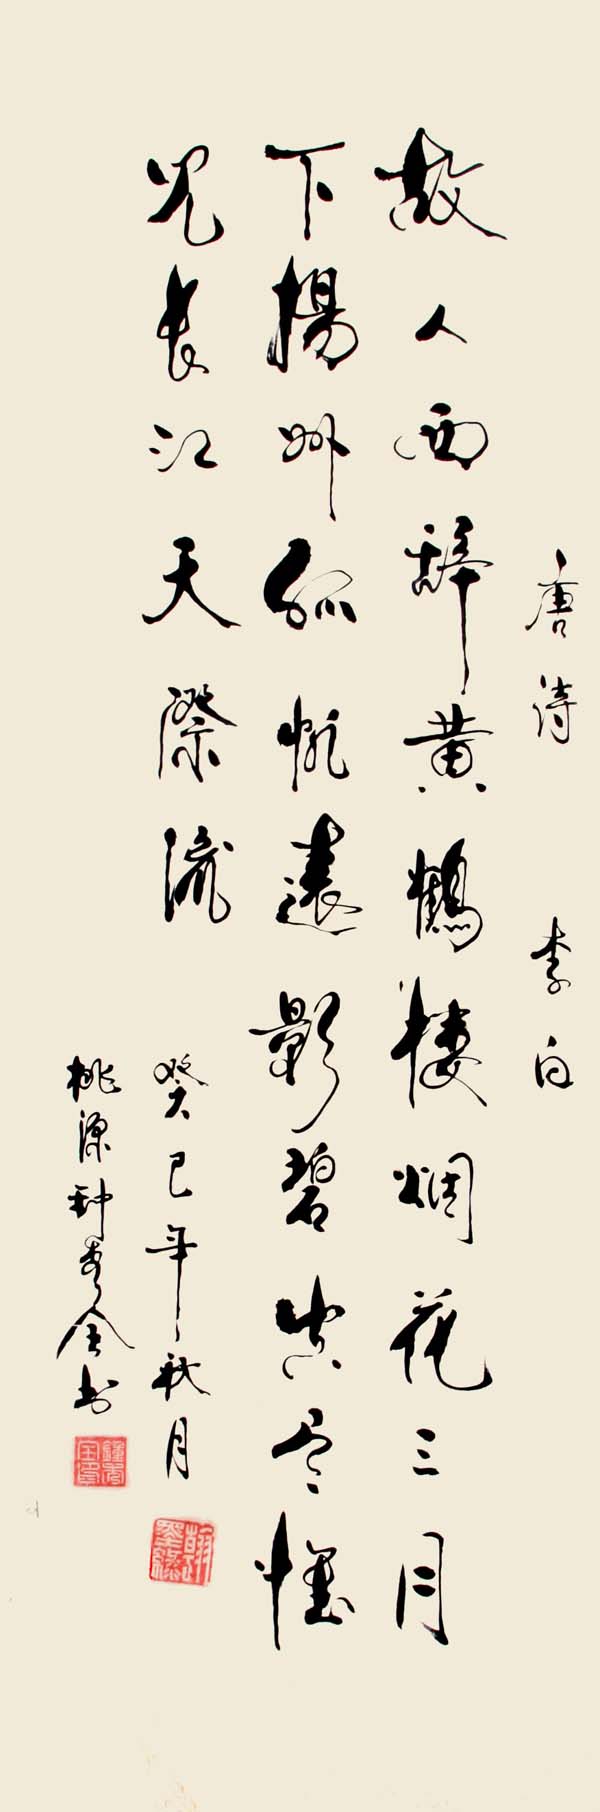 唐诗 李白
故人西辞黄鶴楼烟花三月
下揚州孤帆遠影碧空尽惟
见长江天際流
癸巳年秋月
桃源钟秀全书
翰墨緣